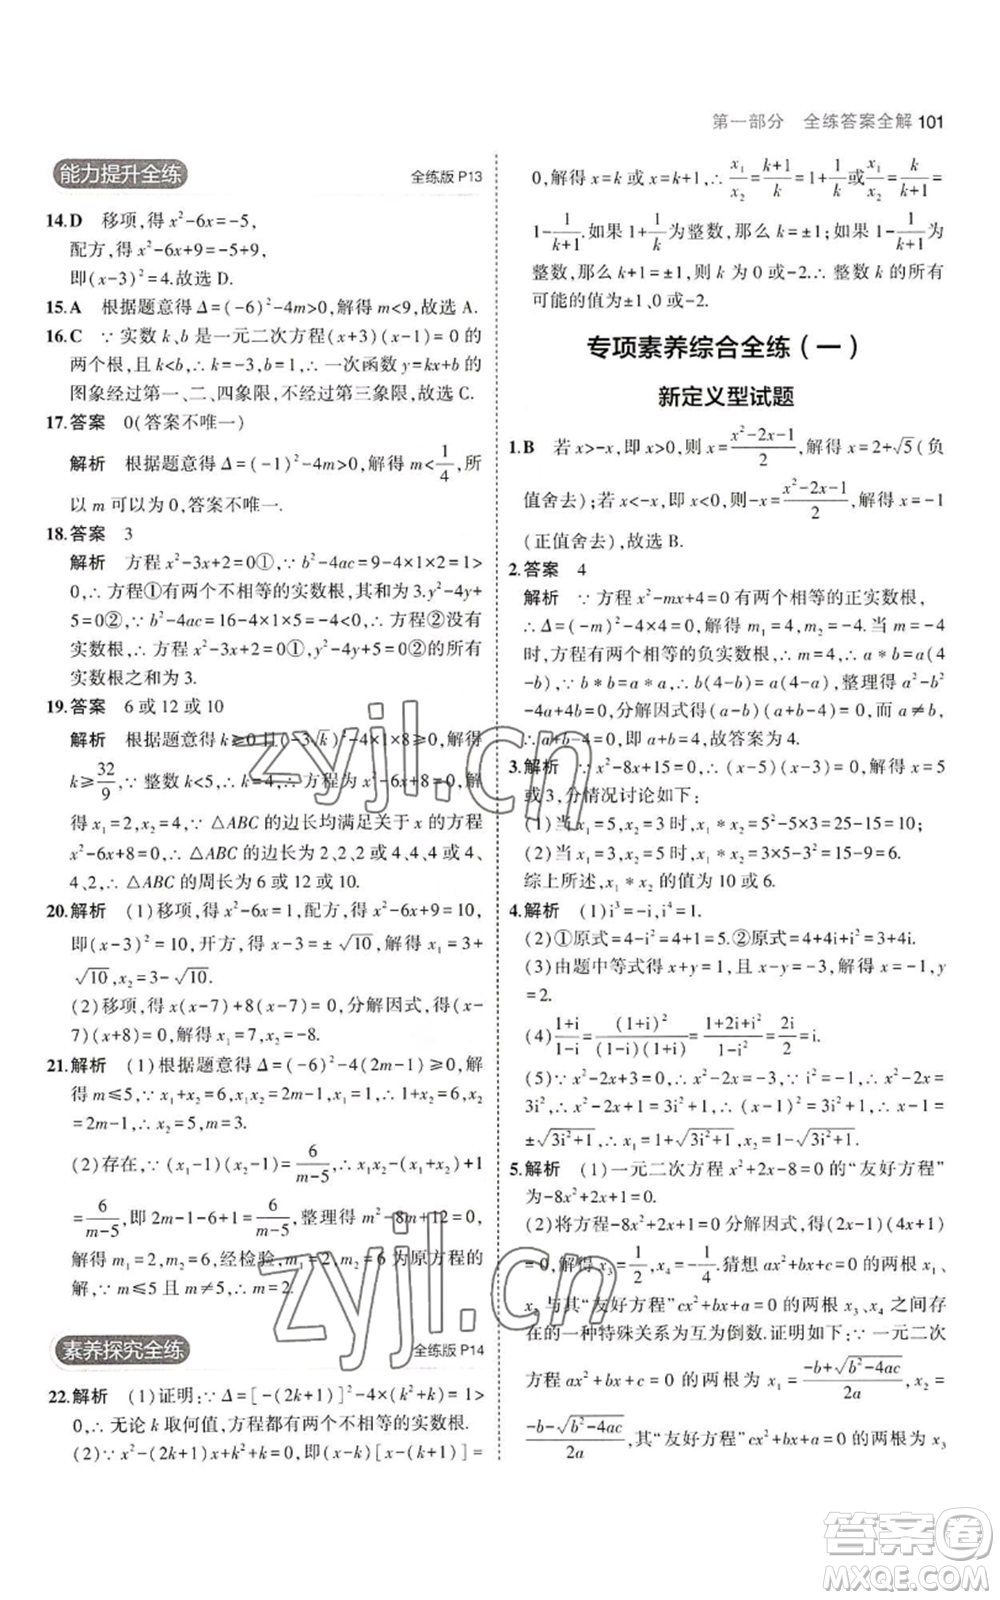 第一部分 全练答案全解 101
能力提升全练 全练版 P13
14.D 移项,得 x²-6x=-5,
配方,得 x²-6x+9=-5+9,
即(x-3)²=4.故选 D.
15.A 根据题意得 Δ=(-6)²-4m>0,解得 m<9,故选 A.
16.C ∵ 实数 k、b 是一元二次方程(x+3)(x-1)=0 的
两个根,且 k<b,∴ k=-3,b=1,∴ 一次函数 y=kx+b 的
图象经过第一、二、四象限,不经过第三象限,故选 C.
17.答案 0(答案不唯一)
解析 根据题意得 Δ=(-1)²-4m>0,解得 m<1/4,所
以 m 可以为 0,答案不唯一.
18.答案 3
解析 方程 x²-3x+2=0①,∵ b²-4ac=9-4×1×2=1>
0,∴ 方程①有两个不相等的实数根,且两根之和为 3.y²-4y+
5=0②,∵ b²-4ac=16-4×1×5=-4<0,∴ 方程②没有
实数根,∴ 方程 x²-3x+2=0与y²-4y+5=0的所有
实数根之和为 3.
19.答案 6 或 12 或 10
解析 根据题意得 k≥0且(-3√k)²-4×1×8≥0,解得
k≥32/9,∵ 整数 k<5,∴ k=4,∴ 方程为x²-6x+8=0,解
得 x₁=2,x₂=4,∵ △ABC 的边长均满足关于 x 的方程
x²-6x+8=0,∴ △ABC 的边长为 2、2、2 或 4、4、4 或 4、
4、2,∴ △ABC 的周长为 6 或 12 或 10.
20.解析 (1)移项,得 x²-6x=1,配方,得 x²-6x+9=10,
即(x-3)²=10,开方,得 x-3=± √10,∴ x₁=3+
√10,x₂=3-√10.
(2)移项,得 x(x-7)+8(x-7)=0,分解因式,得(x-
7)(x+8)=0,解得 x₁=7,x₂=-8.
21.解析 (1)根据题意得 Δ=(-6)²-4(2m-1)≥0,解
得 m≤5,x₁+x₂=6,x₁x₂=2m-1,x₁=1,∴ 1+x₂=6,
x₂=2m-1,∴ x₂=5,m=3.
(2)存在,∵ (x₁-1)(x₂-1)=6/(m-5),∴ x₁x₂-(x₁+x₂)+1
=6/(m-5),即 2m-1-6+1=6/(m-5),整理得 m²-8m+12=0,
解得 m₁=2,m₂=6,经检验,m₁=2,m₂=6 为原方程的
解,∵ m≤5 且 m≠5,∴ m=2.
素养探究全练 全练版 P14
22.解析 (1)证明:∵ Δ=[-(2k+1)]²-4×(k²+k)=1>
0,∴ 无论 k 取何值,方程都有两个不相等的实数根.
(2)∵ x²-(2k+1)x+k²+k=0,即(x-k)[x-(k+1)]=
0,解得 x=k 或 x=k+1,∴ x₁/x₂=(k+1)/k=1+1/k或x₁/x₂=k/(k+1)=
1-1/(k+1).如果 1+1/k为整数,那么 k=±1;如果 1-1/(k+1)为
整数,那么 k+1=±1,则 k=0 或-2.∴ 整数 k 的所有
可能的值为±1、0 或-2.
专项素养综合全练(一)
新定义型试题
1.B 若 x>-x,即 x>0,则 x=(x²-2x-1)/2,解得 x=2+√5(负
值舍去);若 x<-x,即 x<0,则-x=(x²-2x-1)/2,解得 x=-1
(正值舍去),故选 B.
2.答案 4
解析 ∵ 方程 x²-mx+4=0 有两个相等的正实数根,
∴ Δ=(-m)²-4×4=0,解得 m₁=4,m₂=-4.当 m=-4
时,方程有两个相等的负实数根,∴ m=4,∴ a*b=a(4
-b),∵ b*b=a*a,∴ b(4-b)=a(4-a),整理得 a²-b²
-4a+4b=0,分解因式得(a-b)(a+b-4)=0,而 a≠b,
∴ a+b-4=0,即 a+b=4,故答案为 4.
3.解析 ∵ x²-8x+15=0,∴ (x-5)(x-3)=0,解得 x=5
或 3,分情况讨论如下:
(1)当 x₁=5,x₂=3 时,x₁*x₂=5²-5×3=25-15=10;
(2)当 x₁=3,x₂=5 时,x₁*x₂=3×5-3²=15-9=6.
综上所述,x₁*x₂ 的值为 10 或 6.
4.解析 (1)i³=-i,i⁴=1.
(2)①原式=4-i²=4+1=5.②原式=4+4i+i²=3+4i.
(3)由题中等式得 x+y=1-x,3=-(-1-x),解得 x=2,y
=2.
(4)(1+i)/(1-i)=(1+i)²/((1-i)(1+i))=(1+2i+i²)/(1-i²)=2i/2=i.
±√(3i²+1),∴ x₁=1+√(3i²+1),x₂=1-√(3i²+1).
5.解析 (1)一元二次方程 x²+2x-8=0 的“友好方程”
为-8x²+2x+1=0.
(2)将方程-8x²+2x+1=0 分解因式,得(2x-1)(4x+1)
=0,解得 x₃=1/2,x₄=-1/4.猜想 ax²+bx+c=0 的两根 x₁、
x₂ 与其“友好方程”cx²+bx+a=0 的两根 x₃、x₄ 之间存在
的一种特殊关系为互为倒数.证明如下:∵ 一元二次
方程 ax²+bx+c=0 的两根为 x₁=(-b+√(b²-4ac))/2a,x₂=
(-b-√(b²-4ac))/2a,其“友好方程”cx²+bx+a=0 的两根为 x₃
zyjl.cn
zyjl.cn
答案圈
MXQE.COM